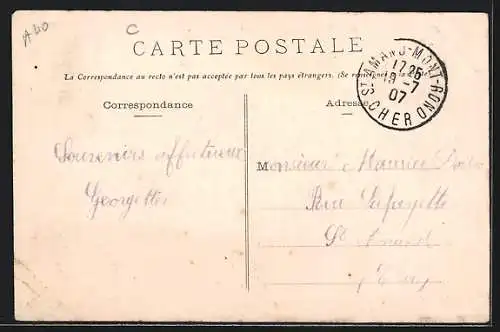 A40
C
CARTE POSTALE
La Correspondance au recto n'est pas acceptée par tous les pays étrangers. (Se
Correspondance
Adresse
ST AMAND-MONT-ROND
17 25
18 -7
07
CHER
Souvenirs affectueux
Georgette
Monsieur Maurice
Rue Lafayette
St Amand